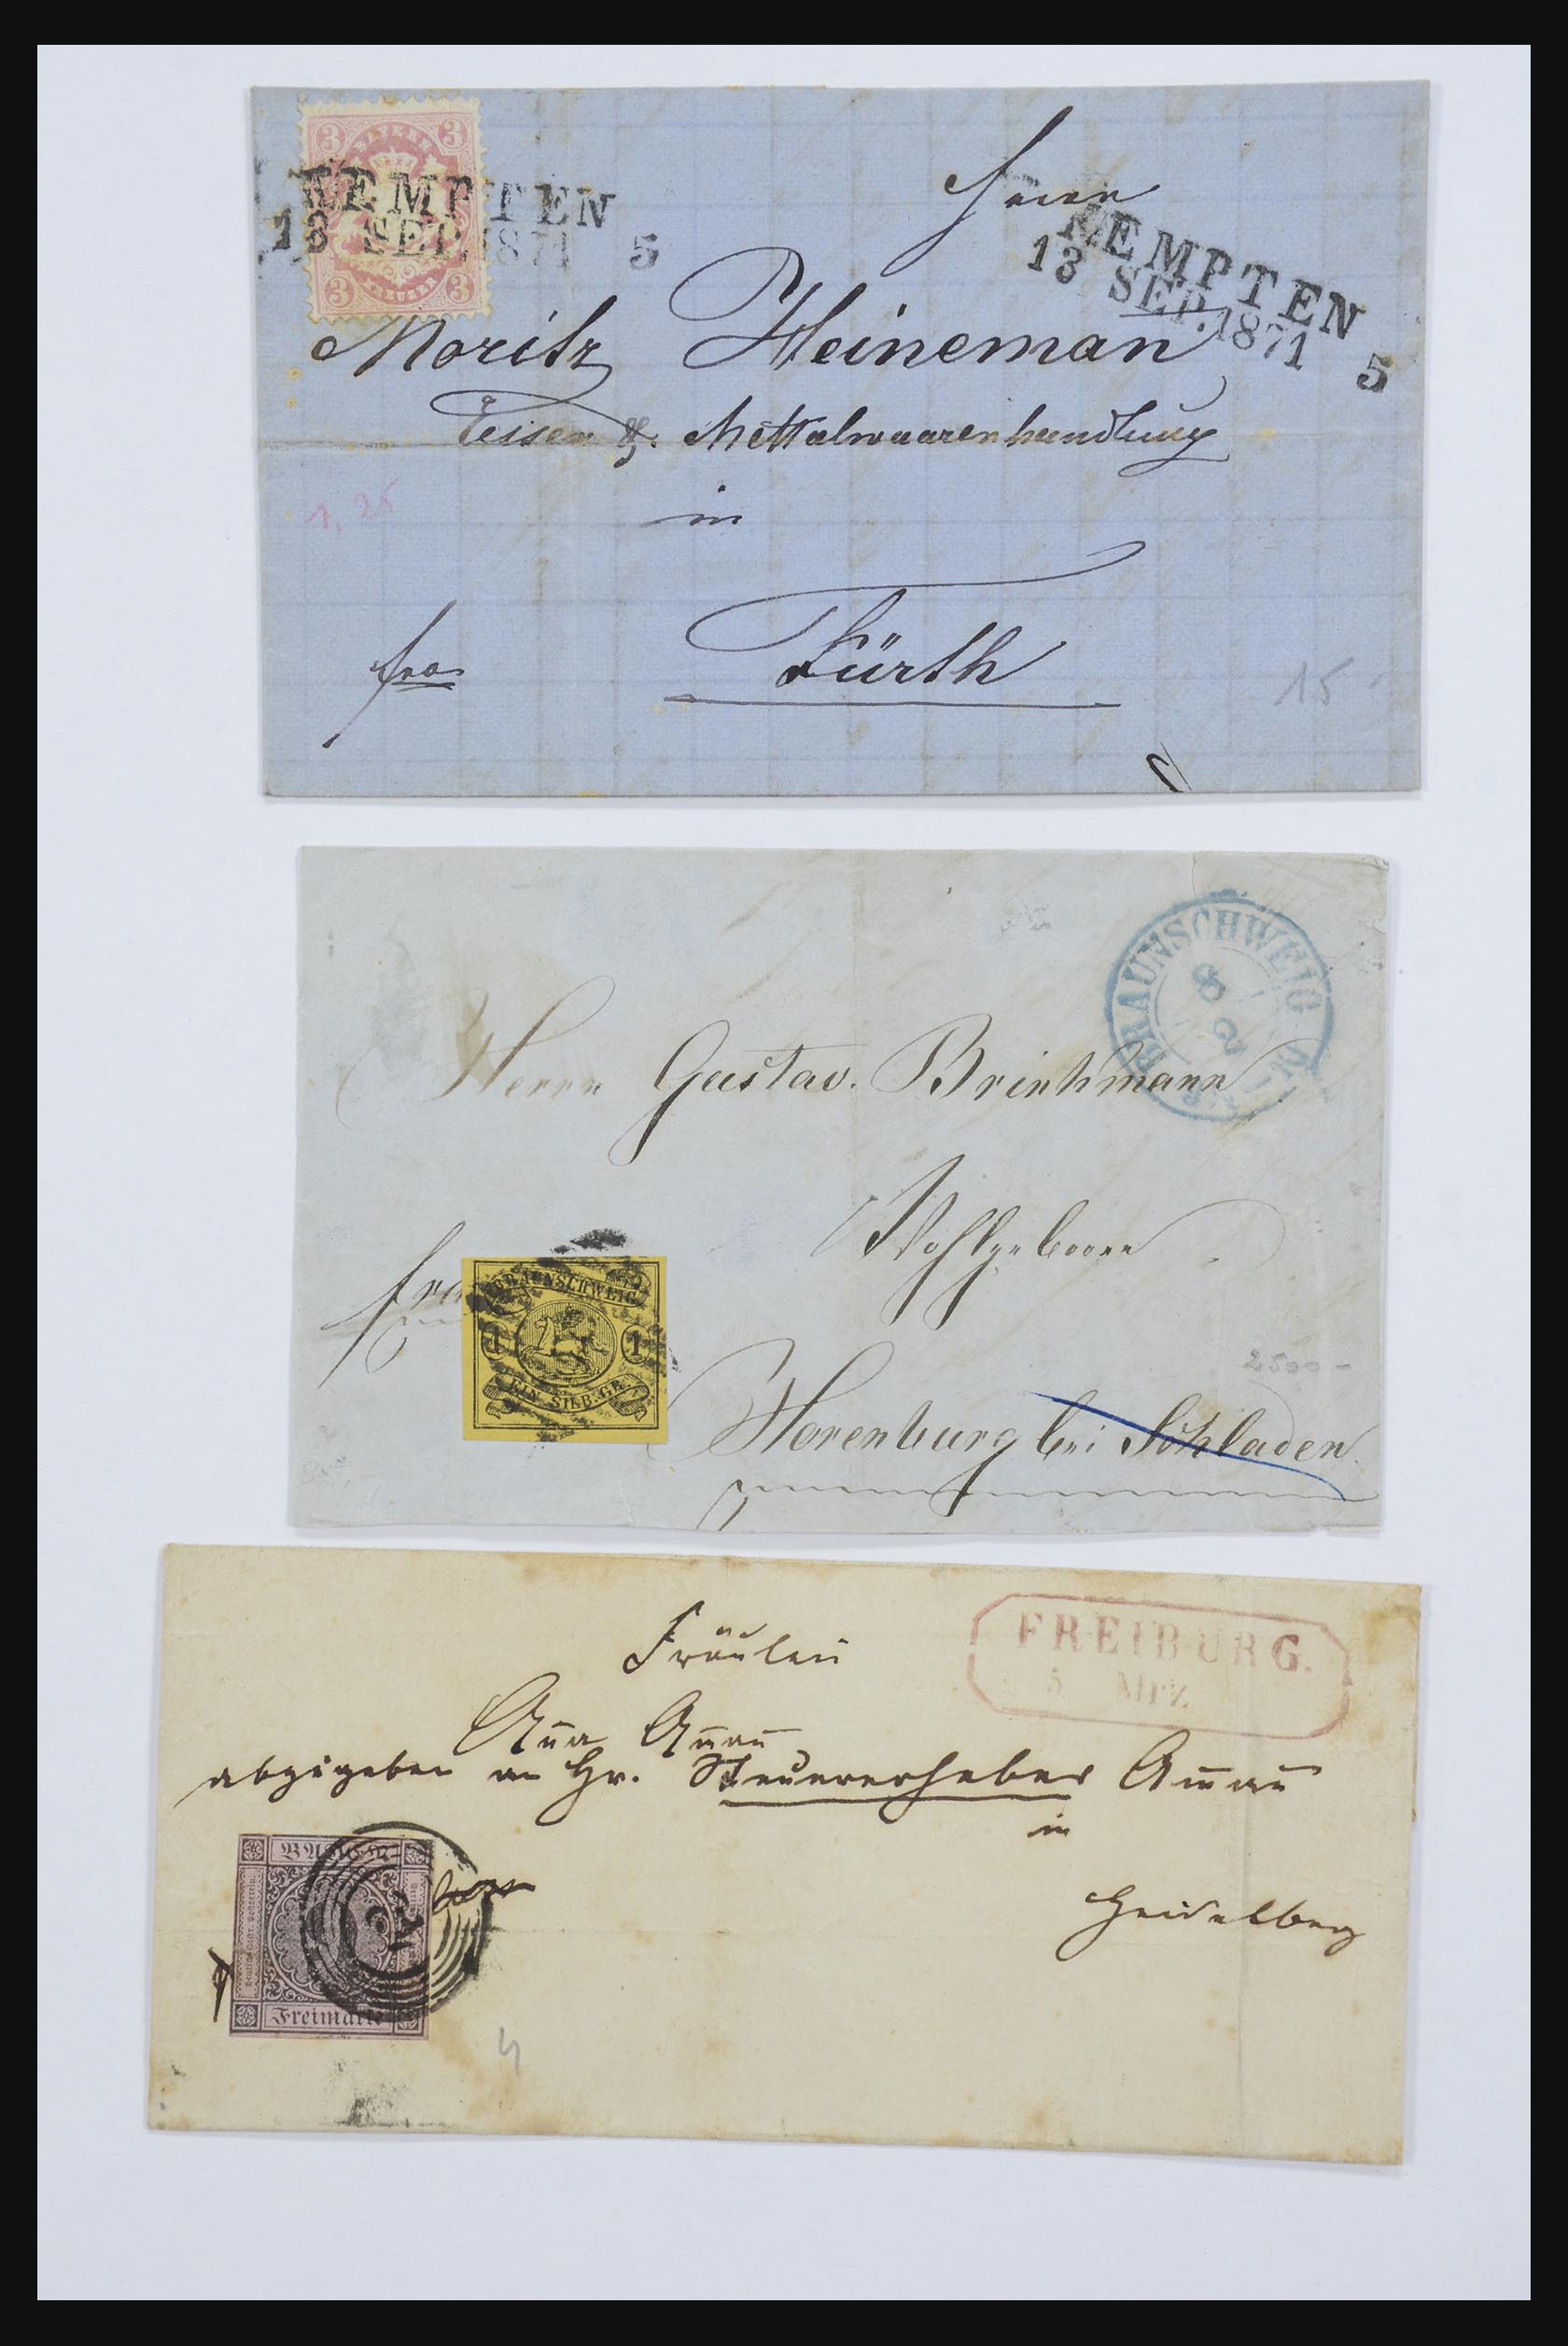 3 BAYERN 3
KEMPTEN
13 SEP. 1871 5
3 KREUZER 3
Herrn
KEMPTEN
13 SEP. 1871 5
Moritz Heineman
Eisen & Mettalwaarenhandlung
in
Fürth
fro
1,25
15
BRAUNSCHWEIG
8
2
Herrn Gustav. Brinkmann
Wohlgeboren
fra
BRAUNSCHWEIG
1 1
EIN SILB.GR.
2500-
Horenburg bei Schladen
FREIBURG.
5 MRZ.
Fräulein
Anna
abzugeben an Hr. Steuererheber
in
Heidelberg
BADEN
Freimarke